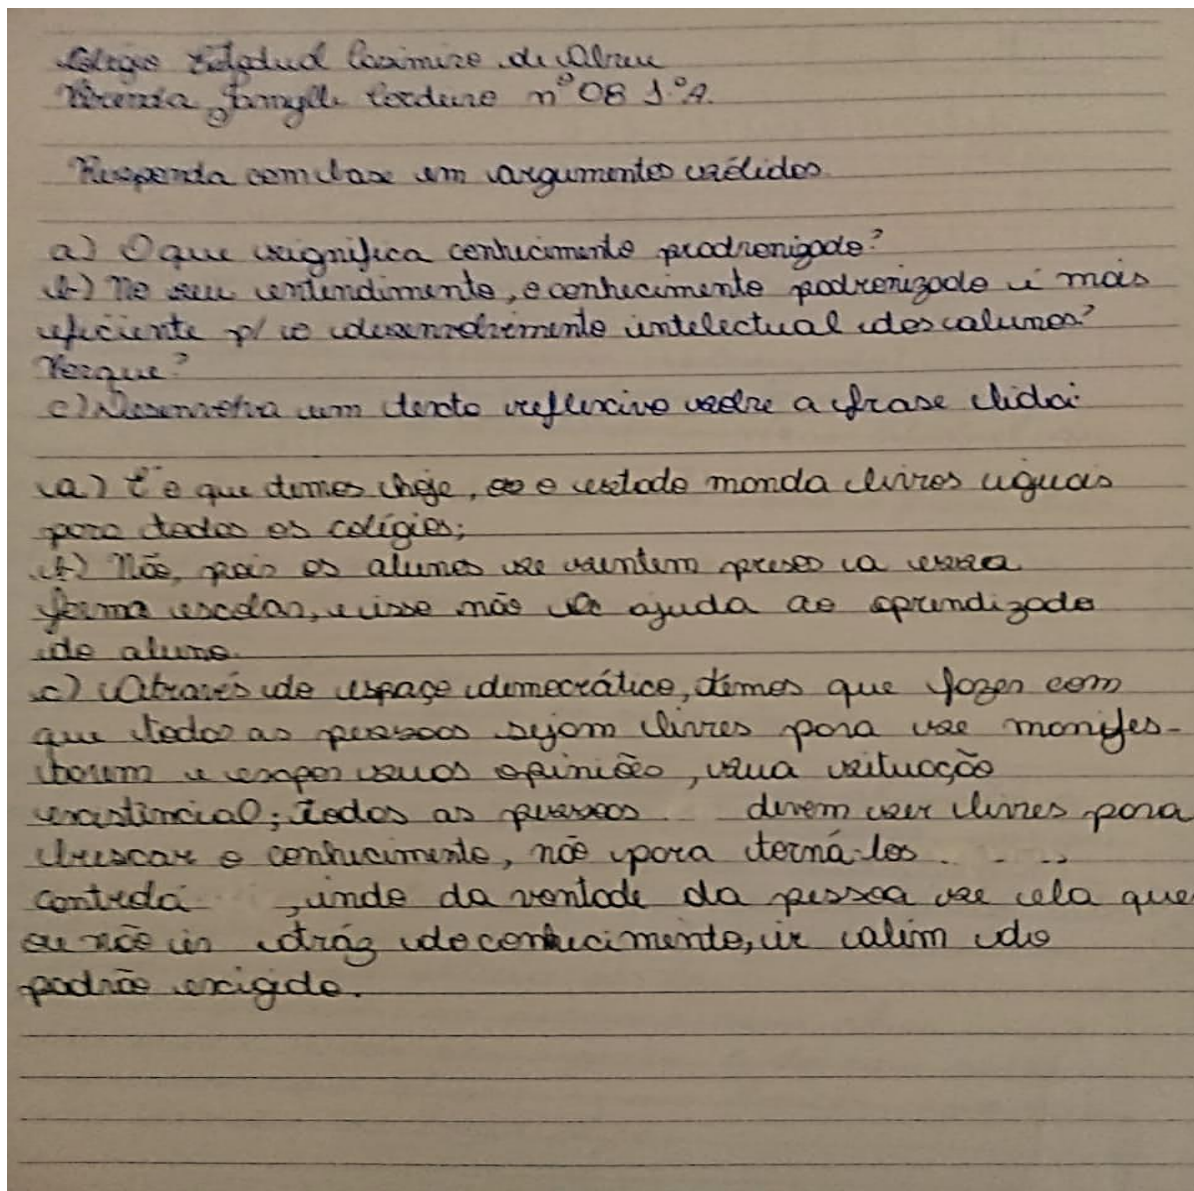 Colégio Estadual Casimiro de Abreu
Brenda Jamylle Cordeiro nº 08 1.º A.
Responda com base em argumentos válidos.
a) O que significa conhecimento padronizado?
b) No seu entendimento, o conhecimento padronizado é mais
eficiente p/ o desenvolvimento intelectual dos alunos?
Porque?
c) Desenvolva um texto reflexivo sobre a frase lida:
a) É o que temos hoje, o estado manda livros iguais
para todos os colégios;
b) Não, pois os alunos se sentem presos a essa
forma escolar, e isso não ajuda ao aprendizado
do aluno.
c) Através do espaço democrático, temos que fazer com
que todas as pessoas sejam livres para se manifes-
tarem e expor suas opinião, sua situação
existêncial; todas as pessoas devem ser livres para
buscar o conhecimento, não para torná-los
, indo da vontade da pessoa se ela quer
ou não ir atráz do conhecimento, ir além do
padrão exigido.